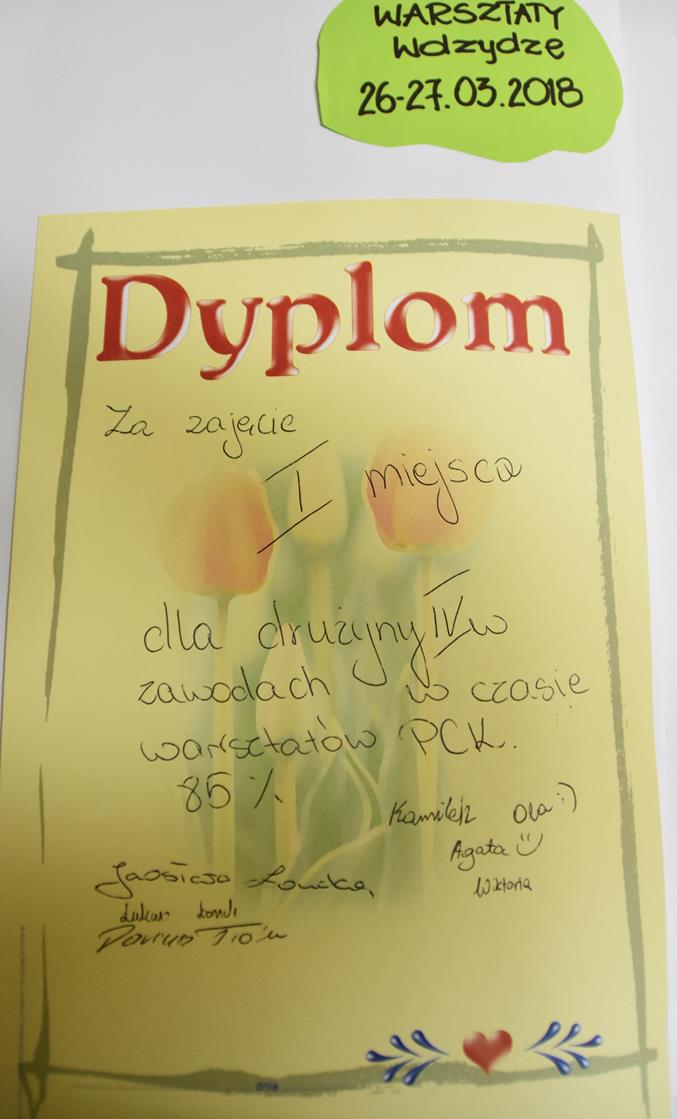 WARSZTATY
Wdzydze
26-27.03.2018
Dyplom
Za zajęcie
I miejsca
dla drużyny IV w
zawodach w czasie
warsztatów PCK.
85%
Kamilek Ola :)
Agata
Wiktoria
Łukasz